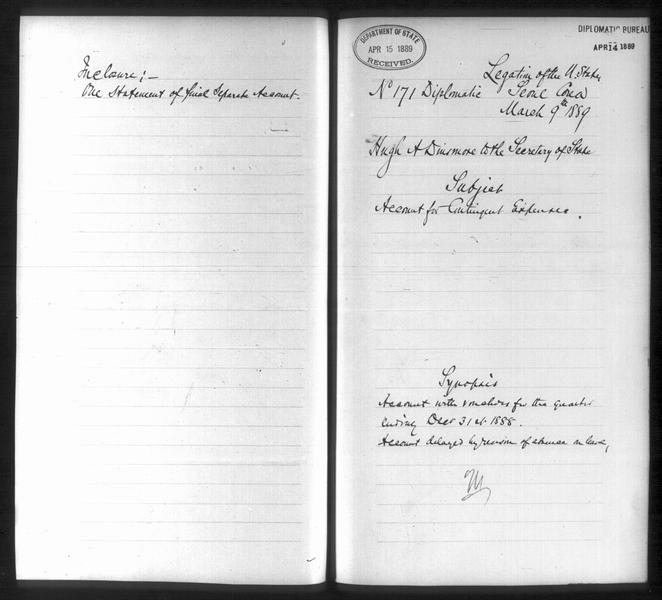 Inclosure:—
One Statement of Final Separate Account.
DEPARTMENT OF STATE
APR 15 1889
RECEIVED.
DIPLOMATIC BUREAU
APR 14 1889
Legation of the U. States
No 171 Diplomatic Seoul Corea
March 9th 1889
Hugh A Dinsmore to the Secretary of State
Subject
Account for Contingent Expenses.
Synopsis
Account with vouchers for the quarter
ending Decr 31st 1888.
Account delayed by reason of absence on leave,